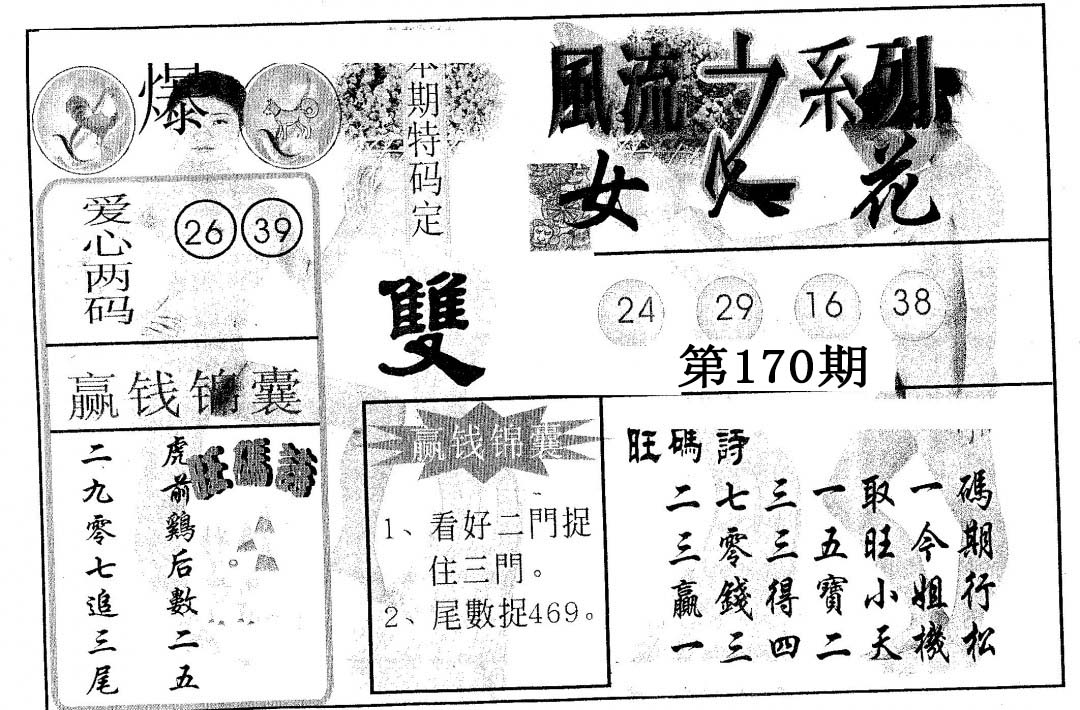 爆
本期特码定
雙
風流之系列
女人花
爱心两码
26 39
24 29 16 38
第170期
赢钱锦囊
旺碼詩
虎前鷄后數二五
二九零七追三尾
赢钱锦囊
1、看好二門捉
住三門。
2、尾數捉469。
旺碼詩
二七三一取一碼
三零三五旺今期
贏錢得寶小姐行
一三四二天機松